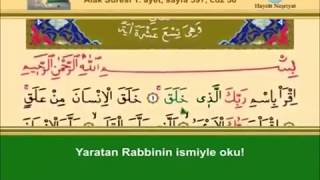 Alak Suresi 1. ayet, sayfa 597, cüz 30
Hayrât Neşriyat
وَهِيَ تِسْعَ عَشْرَةَ اٰيَةً
بِسْمِ اللّٰهِ الرَّحْمٰنِ الرَّحِيمِ
اِقْرَأْ بِاسْمِ رَبِّكَ الَّذِي خَلَقَ ١ خَلَقَ الْاِنْسَانَ مِنْ عَلَقٍ
Yaratan Rabbinin ismiyle oku!